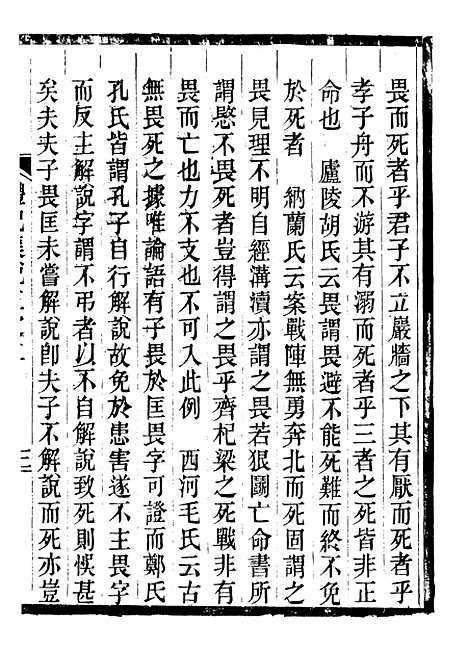 畏而死者乎君子不立巖牆之下其有厭而死者乎
孝子舟而不游其有溺而死者乎三者之死皆非正
命也　廬陵胡氏云畏謂畏避不能死難而終不免
於死者　納蘭氏云案戰陣無勇奔北而死固謂之
畏見理不明自經溝瀆亦謂之畏若狠鬭亡命書所
謂愍不畏死者豈得謂之畏乎齊杞梁之死戰非有
畏而亡也力不支也不可入此例　西河毛氏云古
無畏死之據唯論語有子畏於匡畏字可證而鄭氏
孔氏皆謂孔子自行解說故免於患害遂不主畏字
而反主解說字謂不弔者以不自解說致死則悞甚
矣夫夫子畏匡未嘗解說卽夫子不解說而死亦豈
禮記集說